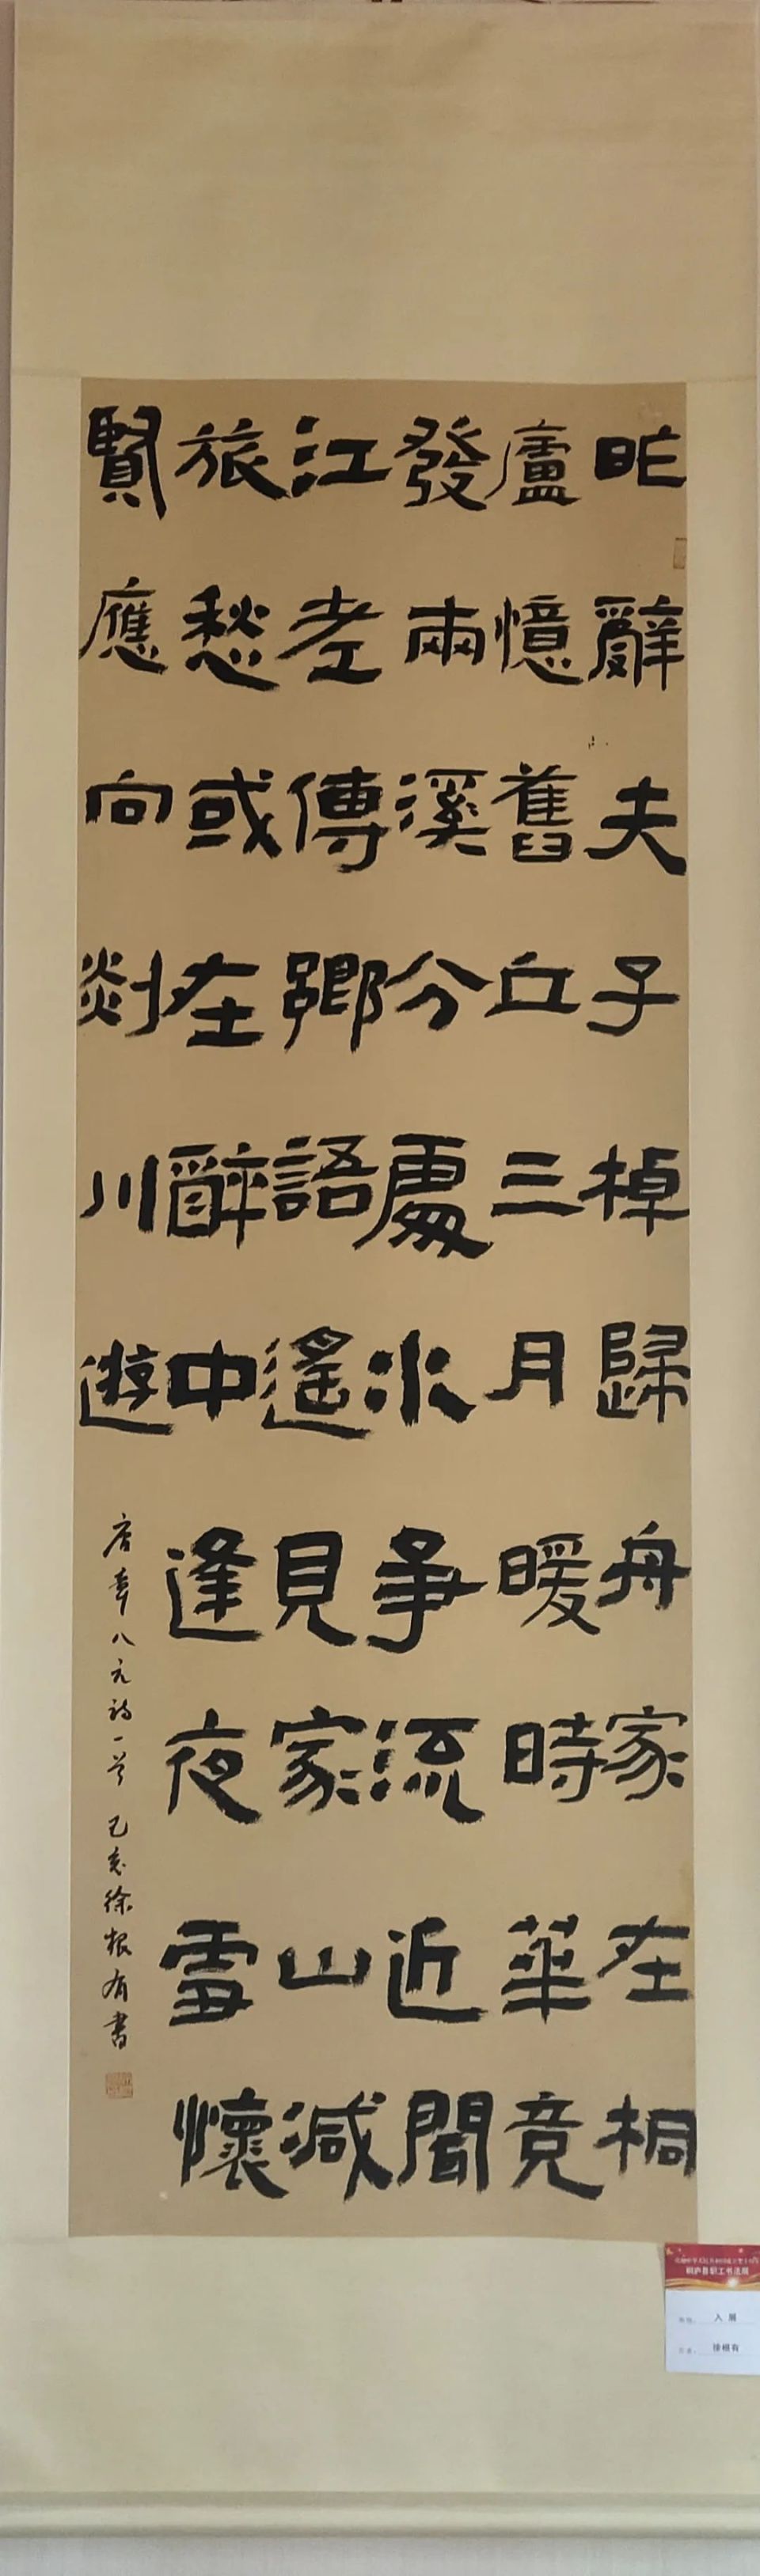 昨辭夫子棹歸舟家在桐
廬憶舊丘三月暖時華竞
發兩溪分處水爭流近聞
江老傳鄉語遙見家山減
旅愁或在醉中逢夜雪懷
賢應向剡川遊
唐章八元詩一首己亥徐根有書
桐庐县职工书法展
入展
徐根有